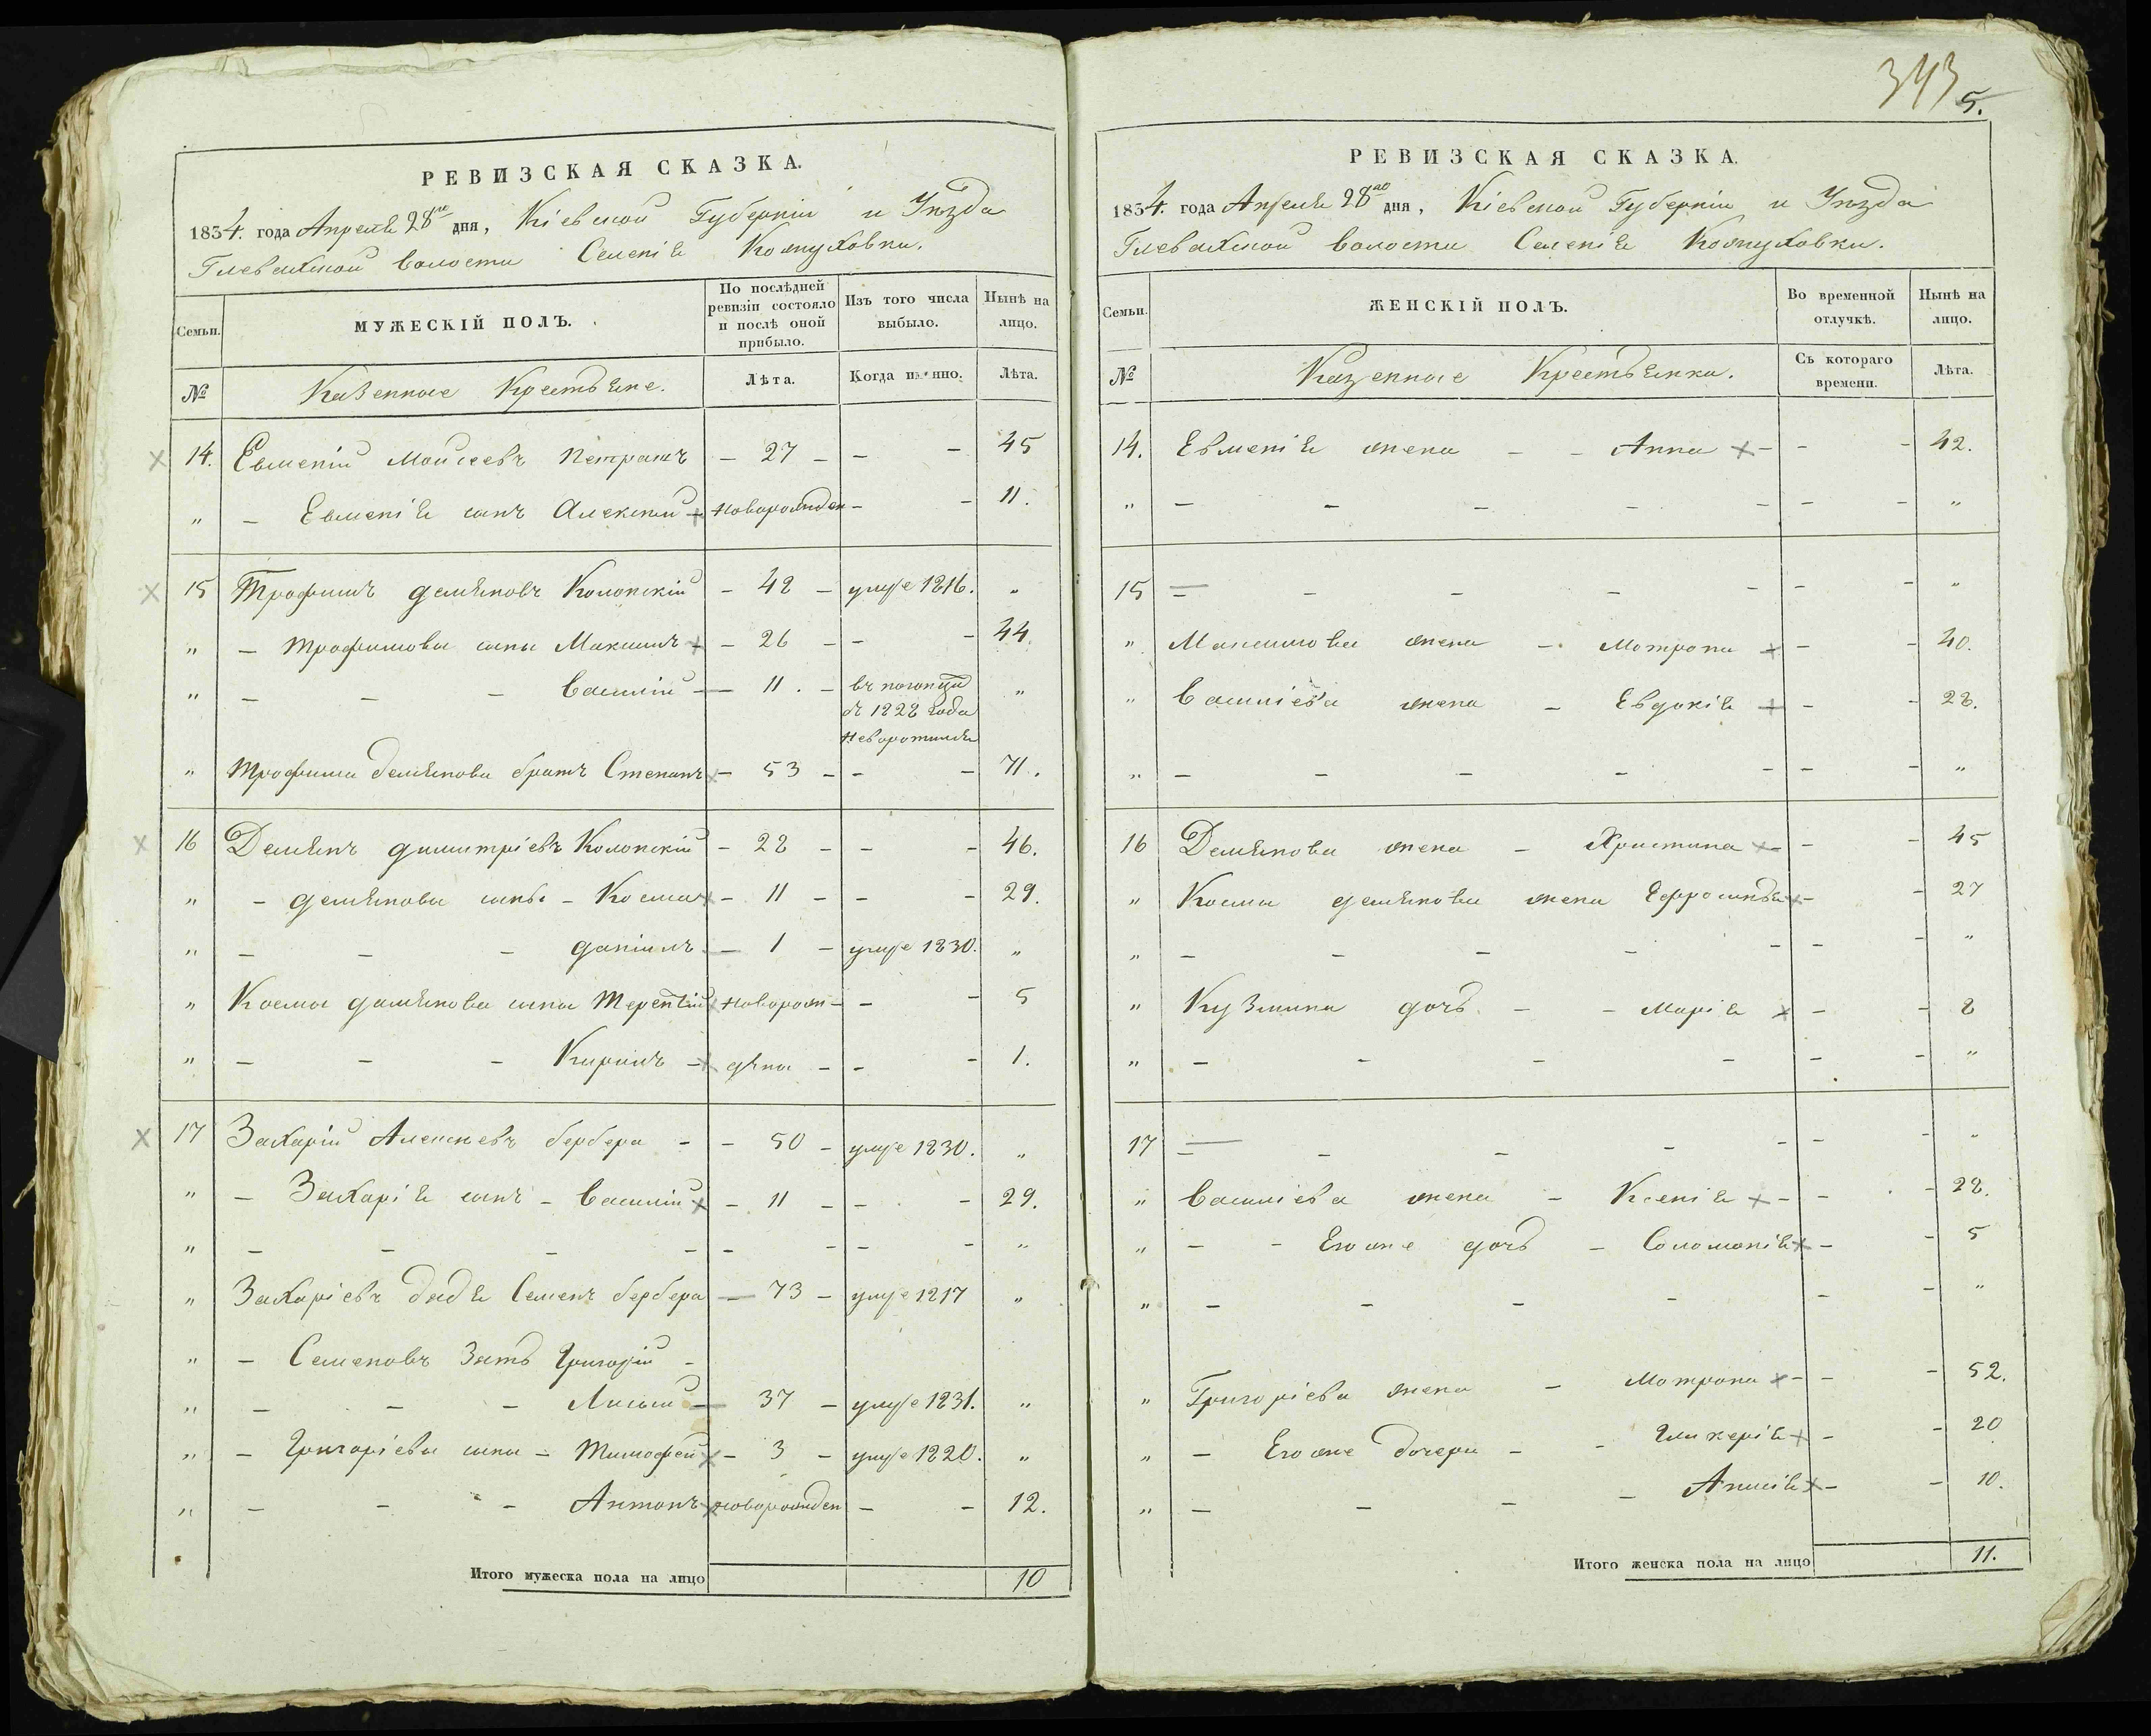 343
5.
РЕВИЗСКАЯ СКАЗКА.
1834. года Апреля 28го дня, Кіевской Губерніи и Уѣзда
Глевахской волости Селенія Кожуховки.
Семьи.
МУЖЕСКІЙ ПОЛЪ.
По послѣдней ревизіи состояло и послѣ оной прибыло.
Изъ того числа выбыло.
Нынѣ на лицо.
№
Казенные Крестьяне.
Лѣта.
Когда именно.
Лѣта.
14. Евменій Моисеевъ Петрашъ – 27 – – – 45
" – Евменія сынъ Алексѣй – новорожден – – 11.
15 Трофимъ Демяновъ Колонскій – 42 – умре 1816. "
" – Трофимовы сыны Максимъ – 26 – – – 44.
" – – – Василій – 11. – въ погонцы
съ 1828 года
неворотился "
" Трофима Демянова братъ Степанъ – 53 – – – 71.
16 Демянъ Димитріевъ Колонскій – 28 – – – 46.
" – Демянова сыны – Косма – 11 – – – 29.
" – – – Даніилъ – 1 – умре 1830. "
" Космы Демянова сыны Терентій новорож – – – 5
" – – – Кирилъ – дены – – – 1.
17 Захарій Алексѣевъ Бербера – – 50 – умре 1830. "
" – Захарія сынъ – Василій – 11 – – – 29.
" – – – – – – – – "
" Захаріевъ дядя Семенъ Бербера – 73 – умре 1817 "
" – Семеновъ зять Григорій –
" – – – Лисый – 37 – умре 1831. "
" – Григоріевы сыны – Тимофей – 3 – умре 1820. "
" – – – Антонъ новорожден – – 12.
Итого мужеска пола на лицо 10
РЕВИЗСКАЯ СКАЗКА.
1834. года Апреля 28го дня, Кіевской Губерніи и Уѣзда
Глевахской волости Селенія Кожуховки.
Семьи.
ЖЕНСКІЙ ПОЛЪ.
Во временной отлучкѣ.
Нынѣ на лицо.
№
Казенные Крестьянки.
Съ котораго времени.
Лѣта.
14. Евменія жена – – Анна – – – 42.
" – – – – – – – "
15 – – – – – – – "
" Максимова жена – Мотрона – – 40.
" Василіева жена – Евдокія – – 28.
" – – – – – – – "
16 Демянова жена – Христина – – – 45
" Космы Демянова жена Ефросинья – – 27
" – – – – – – – "
" Кузмина дочь – – Марія – – 8
" – – – – – – "
17 – – – – – – – "
" Василіева жена – Ксенія – – – 28.
" – – Его же дочь – Соломонія – – 5
" – – – – – – "
" Григоріева жена – Мотрона – – – 52.
" – Его же дочери – – Гликерія – – 20
" – – – – Анисія – – 10.
Итого женска пола на лицо 11.